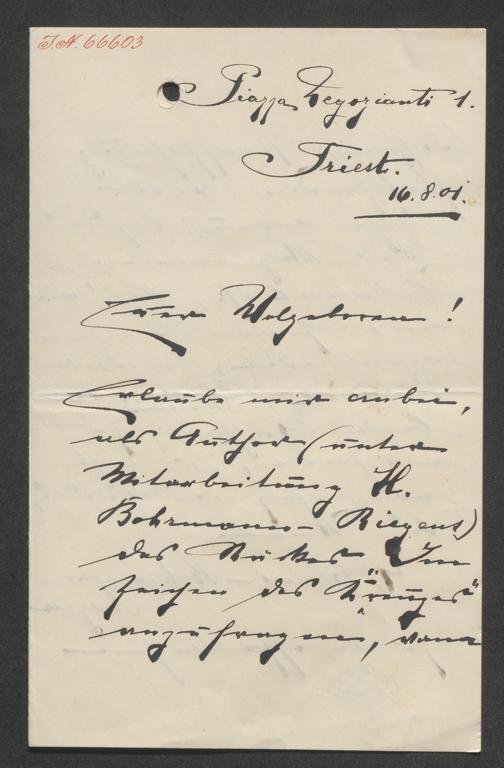 J.N. 66603
Piazza Negozianti 1.
Triest.
16.8.01.
Euer Wolgeboren!
Erlaube mir anbei,
als Author (unter
Mitarbeitung H.
Bohrmann-Riegens)
des Stückes "Im
Zeichen des Kreuzes"
anzufragen, wann